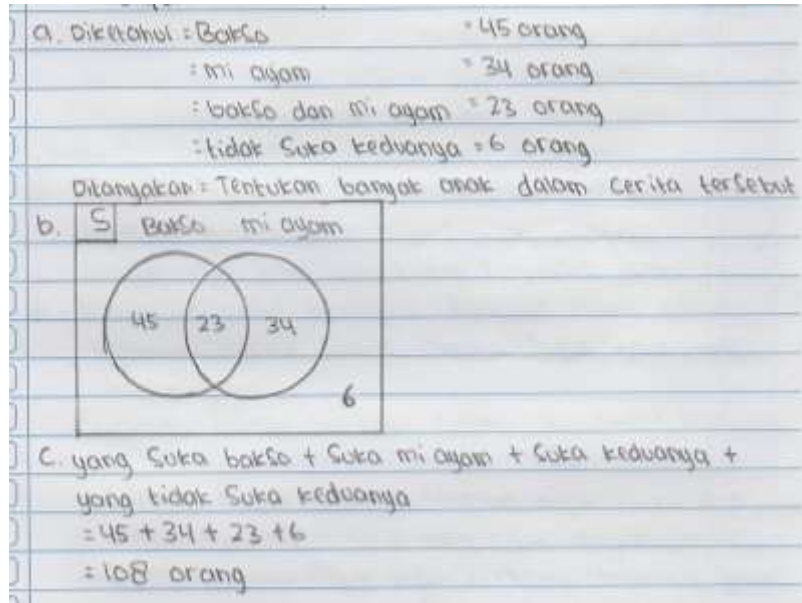 a. Diketahui : Bakso = 45 orang
: mi ayam = 34 orang
: bakso dan mi ayam = 23 orang
: tidak Suka keduanya = 6 orang
Ditanyakan = Tentukan banyak anak dalam cerita tersebut
b. S Bakso mi ayam
45 23 34
6
C. yang Suka bakso + Suka mi ayam + Suka keduanya +
yang tidak Suka keduanya
= 45 + 34 + 23 + 6
= 108 orang